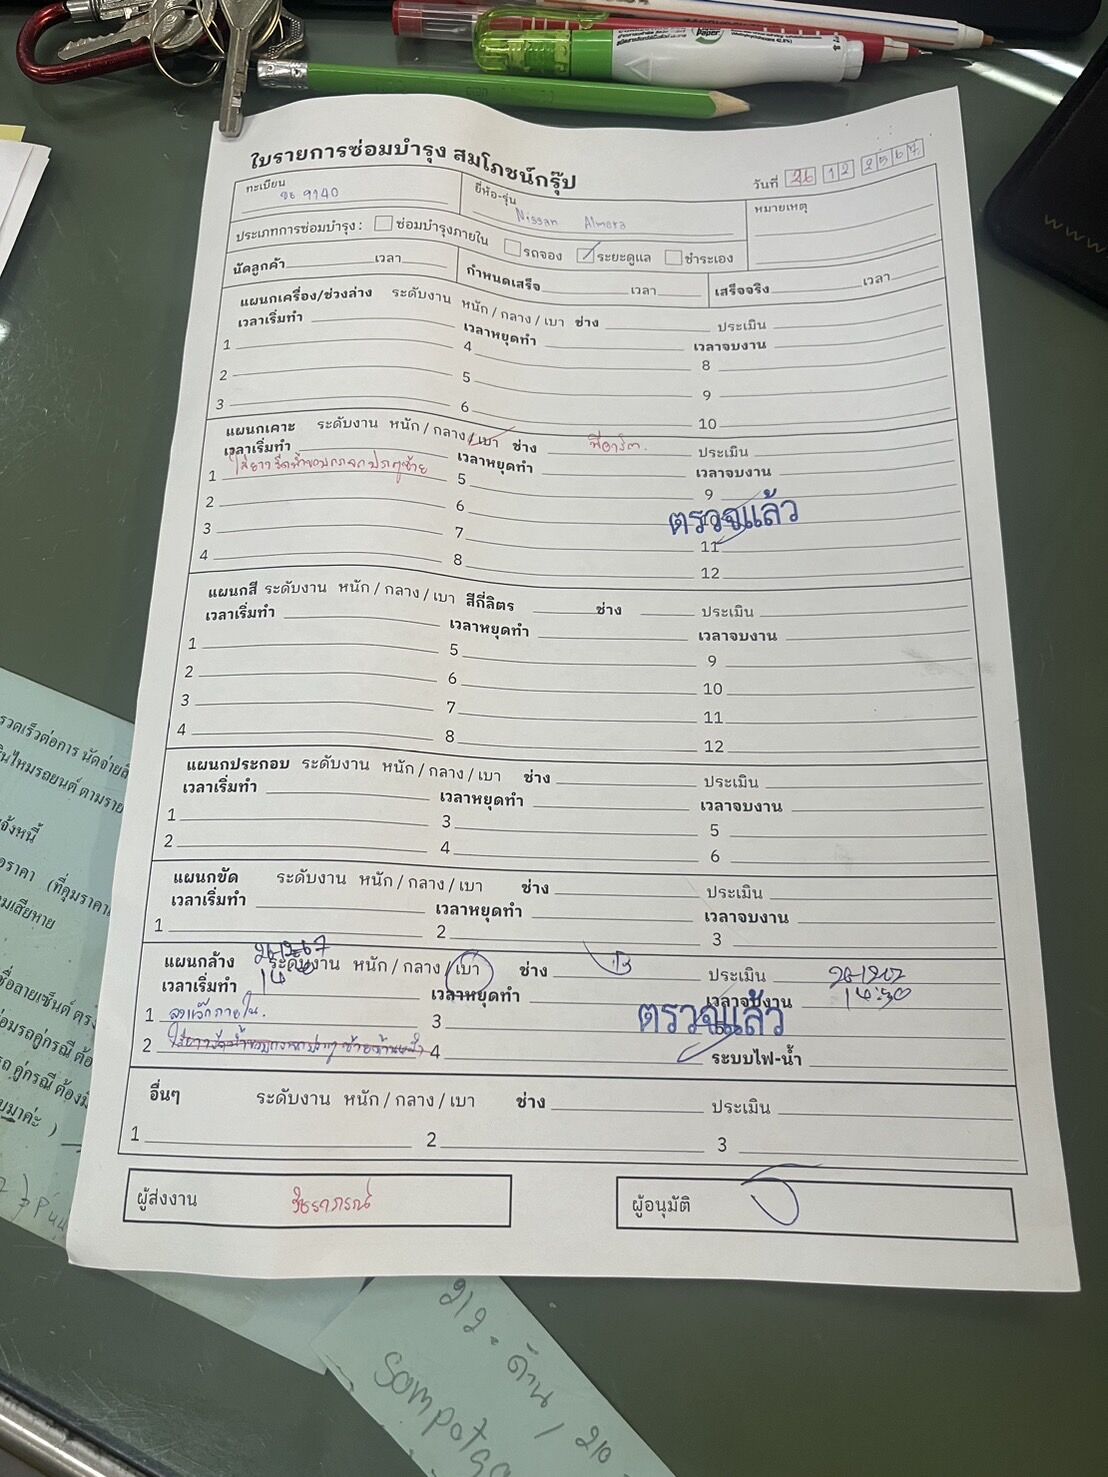 ใบรายการซ่อมบำรุง สมโภชน์กรุ๊ป
วันที่ 26 12 2567
ทะเบียน 9140
ยี่ห้อ-รุ่น Nissan Almera
หมายเหตุ
ประเภทการซ่อมบำรุง : ซ่อมบำรุงภายใน รถจอง ระยะดูแล ชำระเอง
นัดลูกค้า เวลา กำหนดเสร็จ เวลา เสร็จจริง เวลา
แผนกเครื่อง/ช่วงล่าง ระดับงาน หนัก / กลาง / เบา ช่าง ประเมิน
เวลาเริ่มทำ เวลาหยุดทำ เวลาจบงาน
1 4 8
2 5 9
3 6 10
แผนกเคาะ ระดับงาน หนัก / กลาง / เบา ช่าง ประเมิน
เวลาเริ่มทำ เวลาหยุดทำ เวลาจบงาน
1 ใส่ยางรีดน้ำขอบกระจกประตูซ้าย 5 9
2 6 10
ตรวจแล้ว
3 7 11
4 8 12
แผนกสี ระดับงาน หนัก / กลาง / เบา สีกี่ลิตร ช่าง ประเมิน
เวลาเริ่มทำ เวลาหยุดทำ เวลาจบงาน
1 5 9
2 6 10
3 7 11
4 8 12
แผนกประกอบ ระดับงาน หนัก / กลาง / เบา ช่าง ประเมิน
เวลาเริ่มทำ เวลาหยุดทำ เวลาจบงาน
1 3 5
2 4 6
แผนกขัด ระดับงาน หนัก / กลาง / เบา ช่าง ประเมิน
เวลาเริ่มทำ เวลาหยุดทำ เวลาจบงาน
1 2 3
แผนกล้าง 26-12-67 ระดับงาน หนัก / กลาง / เบา ช่าง ประเมิน
เวลาเริ่มทำ เวลาหยุดทำ เวลาจบงาน 14:30
1 3
ตรวจแล้ว
2 4 ระบบไฟ-น้ำ
อื่นๆ ระดับงาน หนัก / กลาง / เบา ช่าง ประเมิน
1 2 3
ผู้ส่งงาน
ผู้อนุมัติ
จ้งหนี้
212 ด้าน / 210